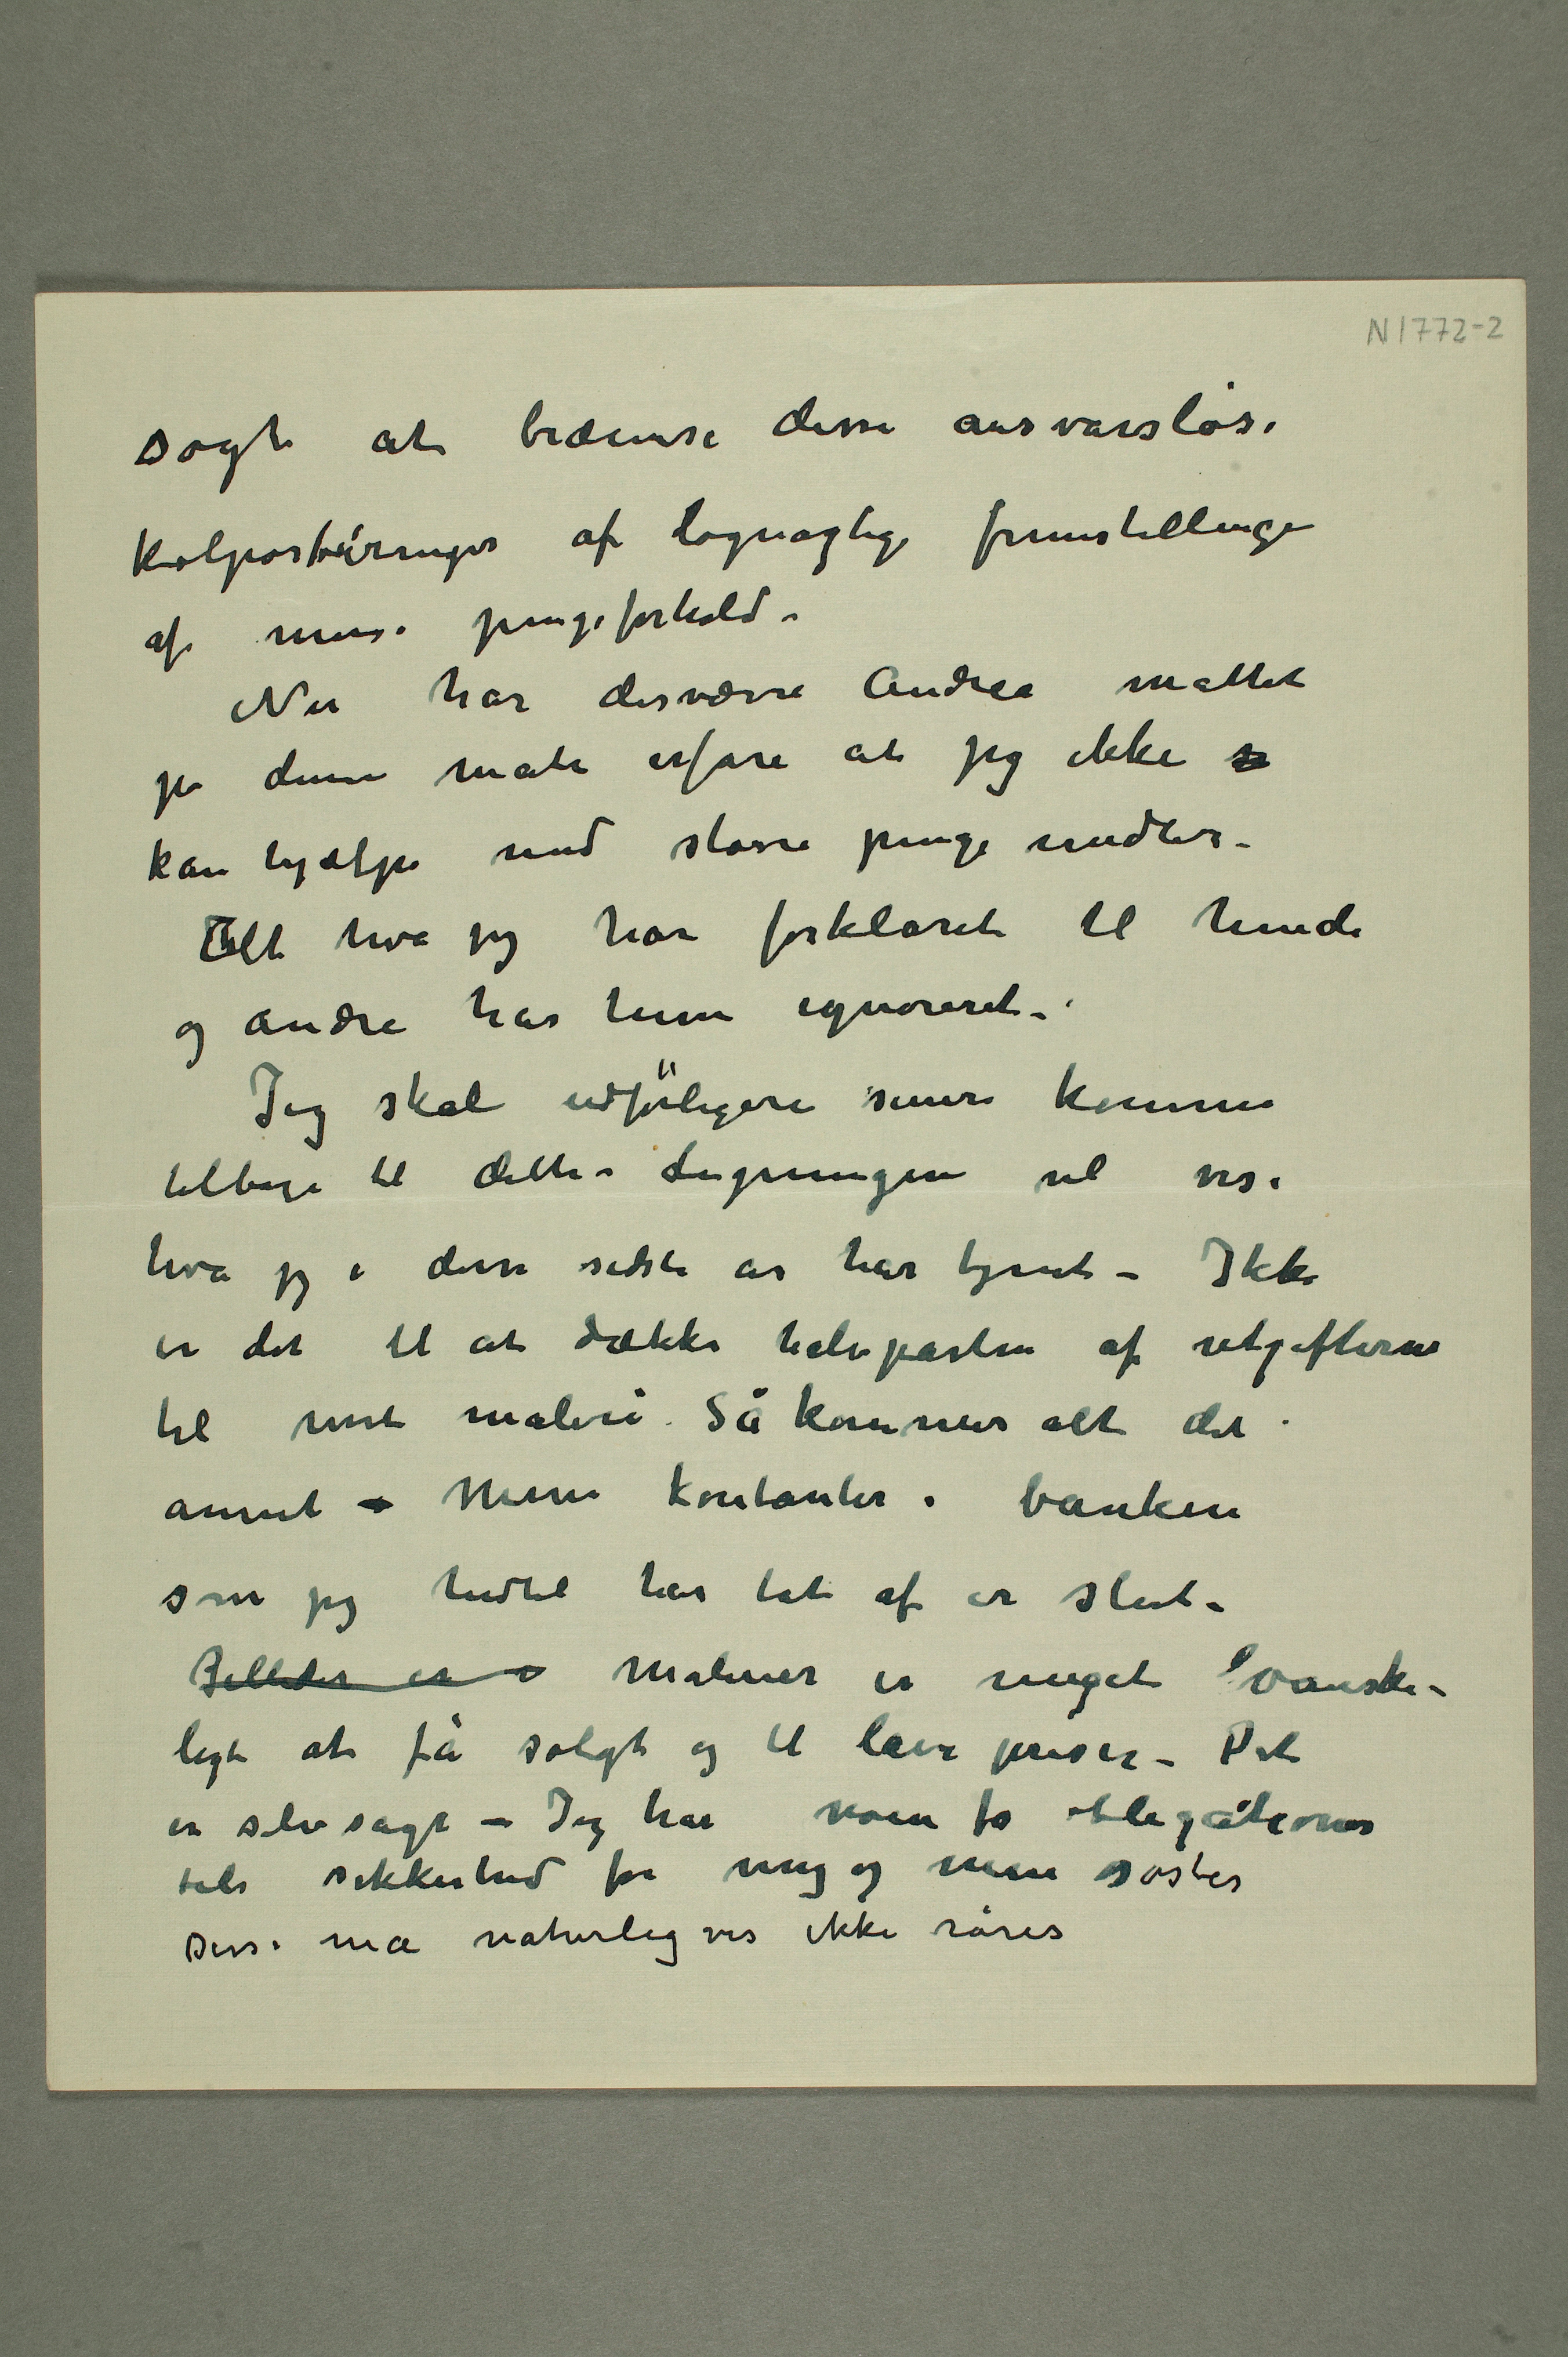 N 1772-2
søgt at bræmse disse ansvarsløse
kolporteringer af løgnagtige fremstillinger
af mine pengeforhold.
Nu har desværre Andrea måttet
på denne måte erfare at jeg ikke
kan hjælpe med større penge midler –
Alt hva jeg har forklaret til hende
og andre har hun ignoreret –
Jeg skal udførligere senere komme
tilbage til dette – Ligningen vil vise
hva jeg i disse sidste år har tjent – Ikke
er det til at dække halvparten af utgifterne
til mit maleri. Så kommer alt det
annet – Mine kontanter i banken
som jeg hidtil har tat af er slut –
Billeder er Malerier er meget vanske-
ligt at få solgt og til lave priser – Det
er selvsagt – Jeg har noen få obligationer
til sikkerhed for mig og min søster
Disse må naturligvis ikke røres